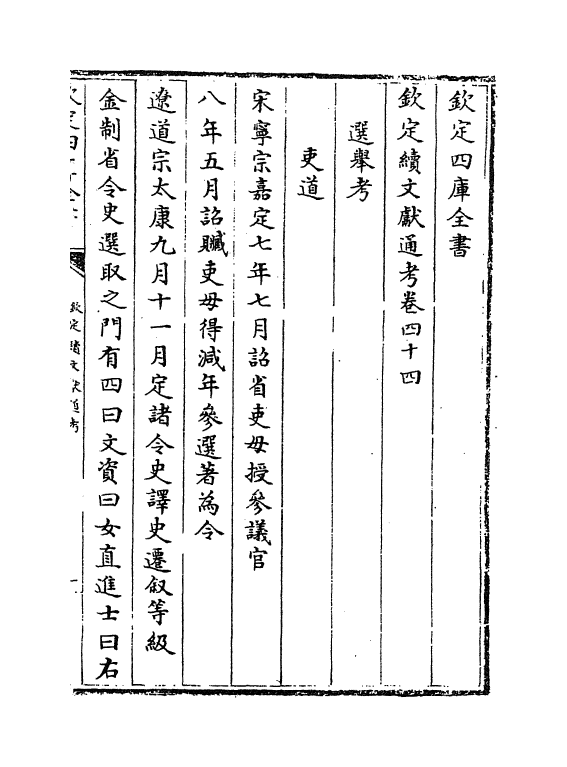 欽定四庫全書
欽定續文獻通考卷四十四
選舉考
吏道
宋寧宗嘉定七年七月詔省吏毋授參議官
八年五月詔贓吏毋得減年參選著為令
遼道宗太康九月十一月定諸令史譯史遷叙等級
金制省令史選取之門有四曰文資曰女直進士曰右
欽定續文獻通考